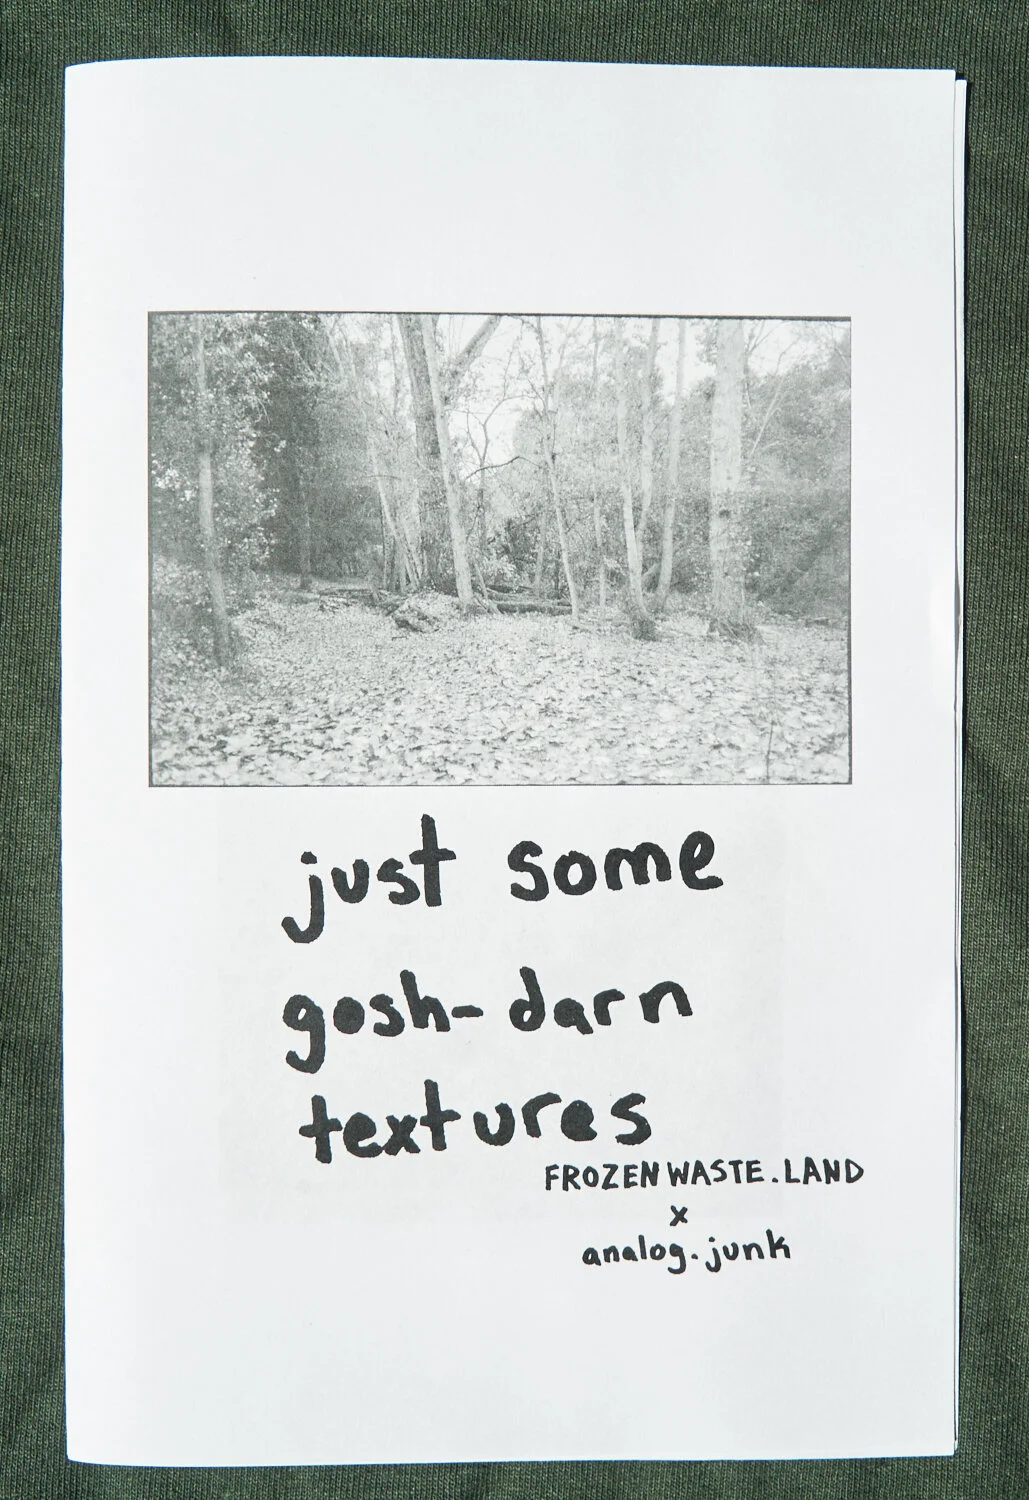 just some
gosh-darn
textures
FROZEN WASTE.LAND
x
analog.junk